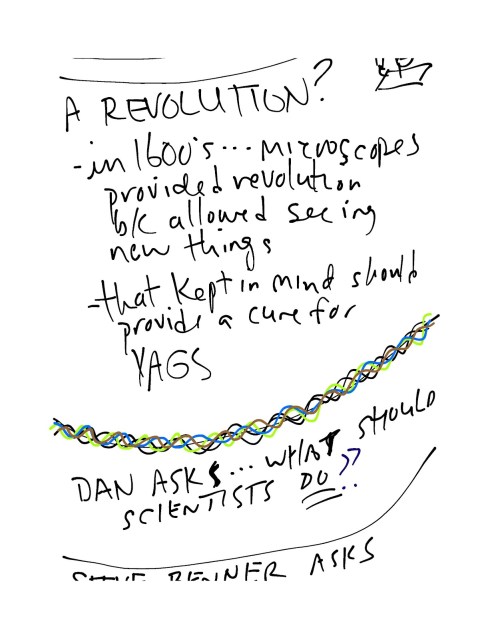 A REVOLUTION?
-in 1600's... MICROSCOPES
provided revolution
b/c allowed seeing
new things
-that kept in mind should
provide a cure for
YAGS
DAN ASKS... WHAT SHOULD
SCIENTISTS DO??
STEVE BENNER ASKS